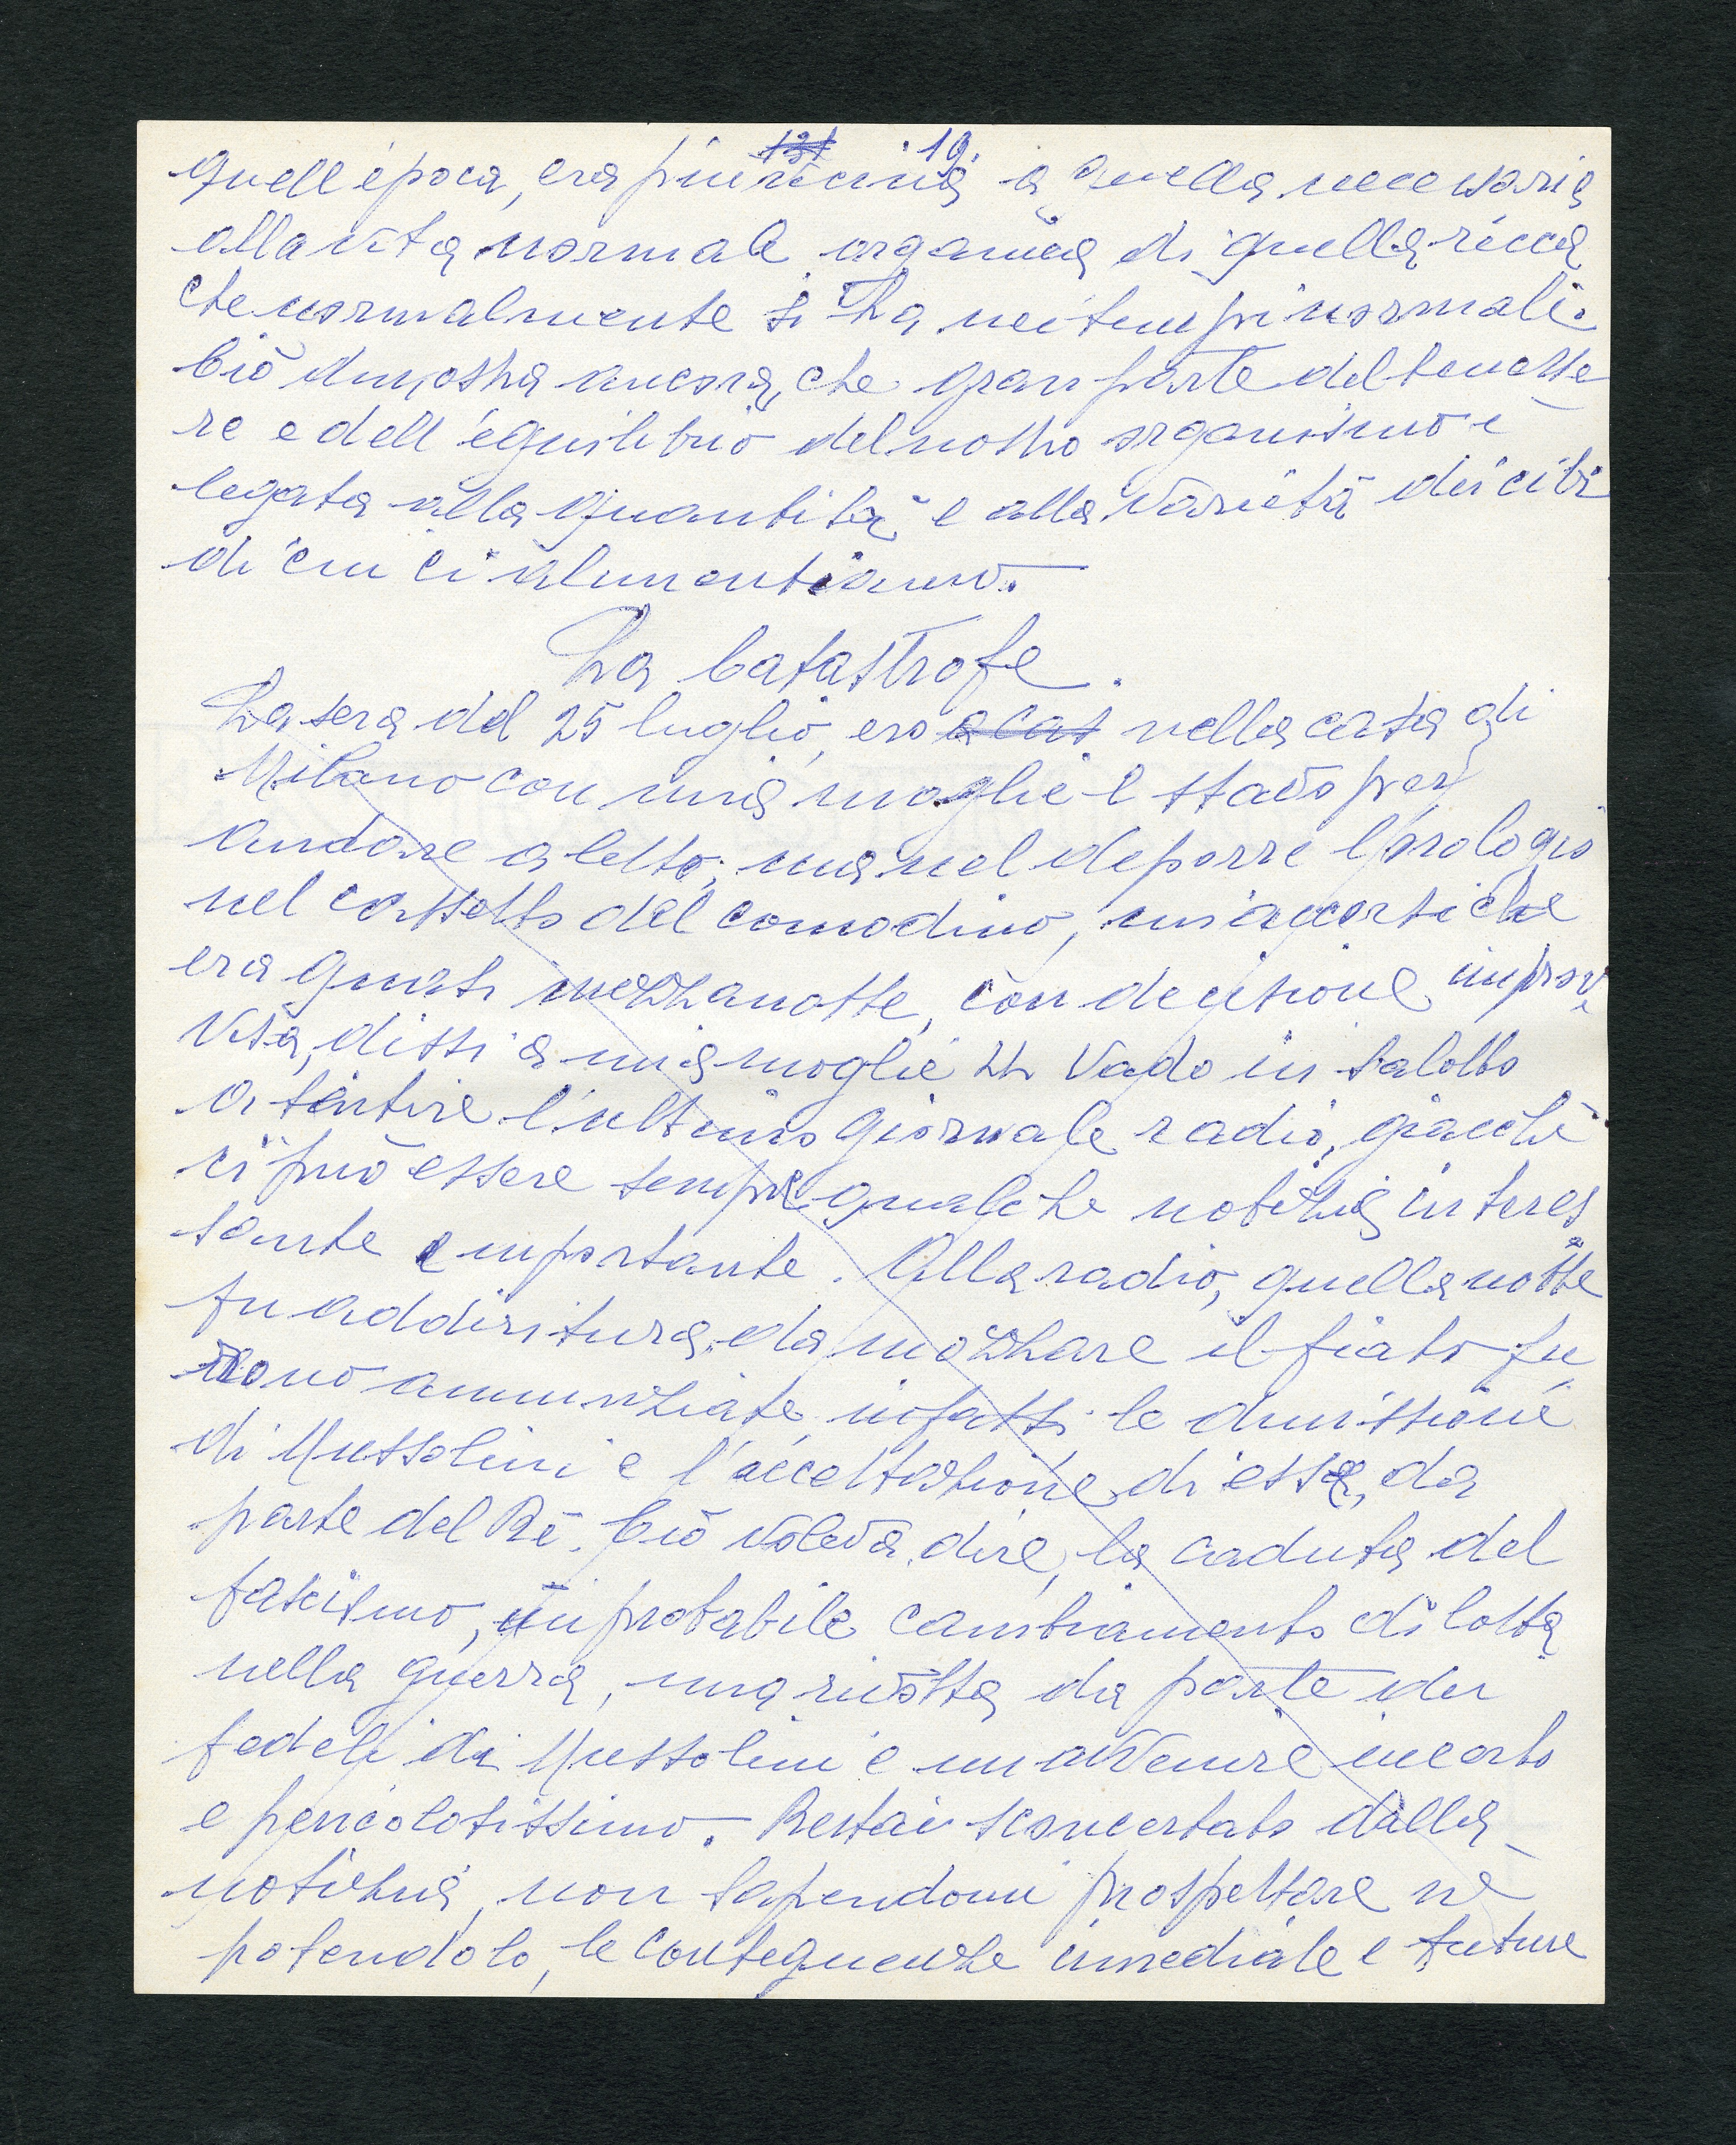 131 .19.
quell'epoca, era più vicina a quella necessaria
alla vita normale organica di quella ricca
che normalmente si ha nei tempi normali.
Ciò dimostra ancora, che gran parte del benesse
re e dell'equilibrio del nostro organismo è
legata alla quantità e alla varietà dei cibi
di cui ci alimentiamo.
La Catastrofe.
La sera del 25 luglio, ero a cas nella casa di
Milano con mia moglie e stavo per
andare a letto; ma nel deporre l'orologio
nel cassetto del comodino, mi accorsi che
era quasi mezzanotte, con decisione improv
visa, dissi a mia moglie = Vado in salotto
a sentire l'ultimo giornale radio, giacché
ci può essere sempre qualche notizia interes
sante e importante. Alla radio, quella notte
fu addiritura da mozzare il fiato fu
rono annunziate infatti le dimissioni
di Mussolini e l'accettazione di esse, da
parte del Re. Ciò voleva dire, la caduta del
fascismo, un probabile cambiamento di lotta
nella guerra, una rivolta da parte dei
fedeli di Mussolini e un avvenire incerto
e pericolosissimo. Restai sconcertato dalla
notizia, non sapendomi prospettare nè
potendolo, le conseguenze imediate e future